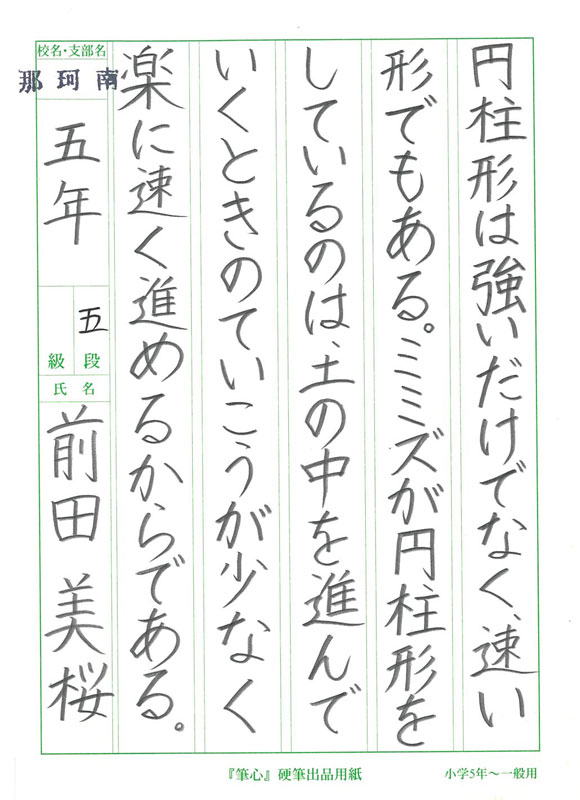 円柱形は強いだけでなく、速い
形でもある。ミミズが円柱形を
しているのは、土の中を進んで
いくときのていこうが少なく
楽に速く進めるからである。
校名・支部名
那珂南
五年
五
級段
氏名
前田美桜
『筆心』硬筆出品用紙
小学5年〜一般用